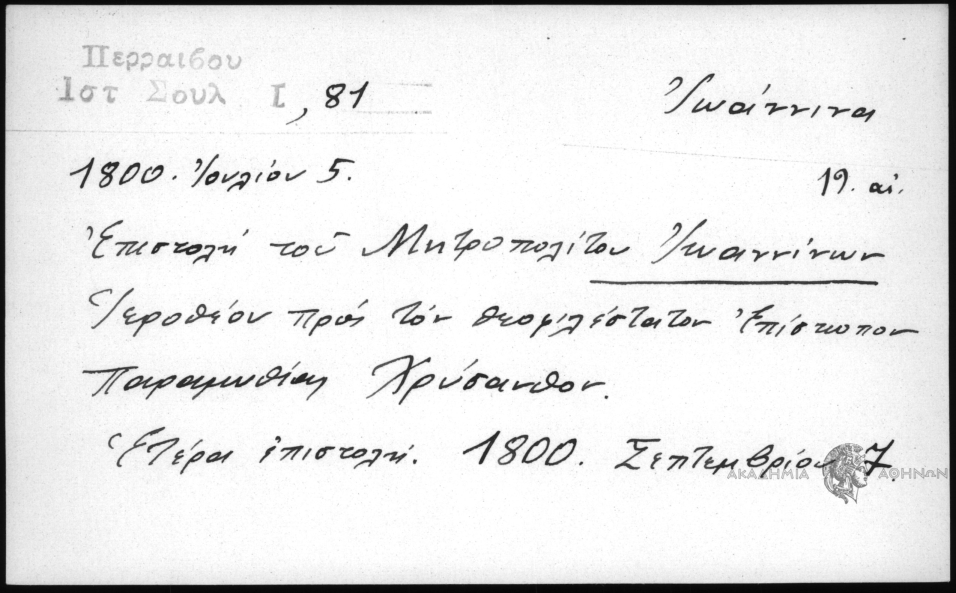 Περραιβου
Ιστ Σουλ Ι, 81
Ἰωάννινα
1800. Ἰουλίου 5.
19. αἰ.
Ἐπιστολή τοῦ Μητροπολίτου Ἰωαννίνων
Ἱεροθέου πρός τόν θεοφιλέστατον Ἐπίσκοπον
Παραμυθίας Χρύσανθον.
Ἑτέρα ἐπιστολή. 1800. Σεπτεμβρίου 7.
ΑΚΑΔΗΜΙΑ ΑΘΗΝΩΝ